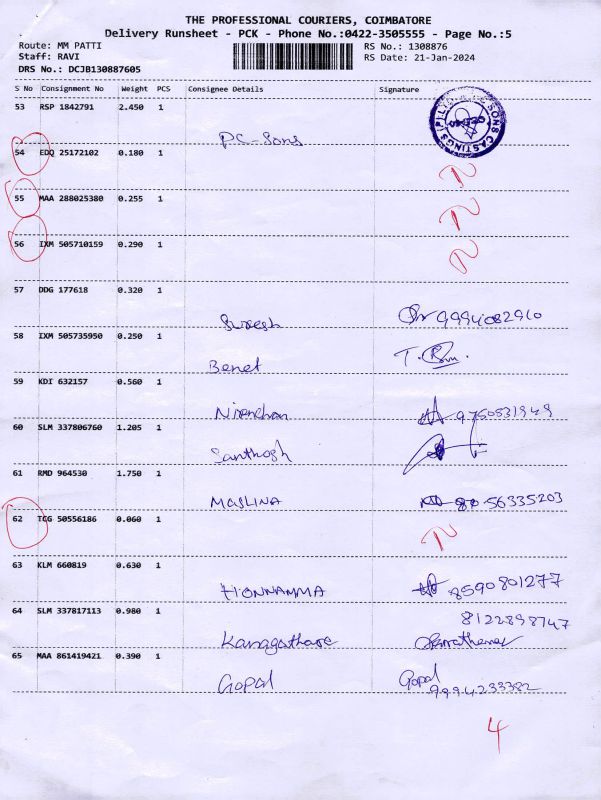 THE PROFESSIONAL COURIERS, COIMBATORE
Delivery Runsheet - PCK - Phone No.:0422-3505555 - Page No.:5
Route: MM PATTI RS No.: 1308876
Staff: RAVI RS Date: 21-Jan-2024
DRS No.: DCJB130887605
S No Consignment No Weight PCS Consignee Details Signature
53 RSP 1842791 2.450 1
P.C-Sons
SONS CASTINGS (P) LTD
54 EDQ 25172102 0.180 1
55 MAA 288025380 0.255 1
56 IXM 505710159 0.290 1
57 DDG 177618 0.320 1
Suresh 9994082910
58 IXM 505735950 0.250 1
Benet
59 KDI 632157 0.560 1
Niranchan 9750531949
60 SLM 337806760 1.205 1
Santhosh
61 RMD 964530 1.750 1
MASLINA 56335203
62 TCG 50556186 0.060 1
63 KLM 660819 0.630 1
HONNAMMA 8590801277
64 SLM 337817113 0.980 1
8122898747
65 MAA 861419421 0.390 1
Gopal Gopal
9994233382
4